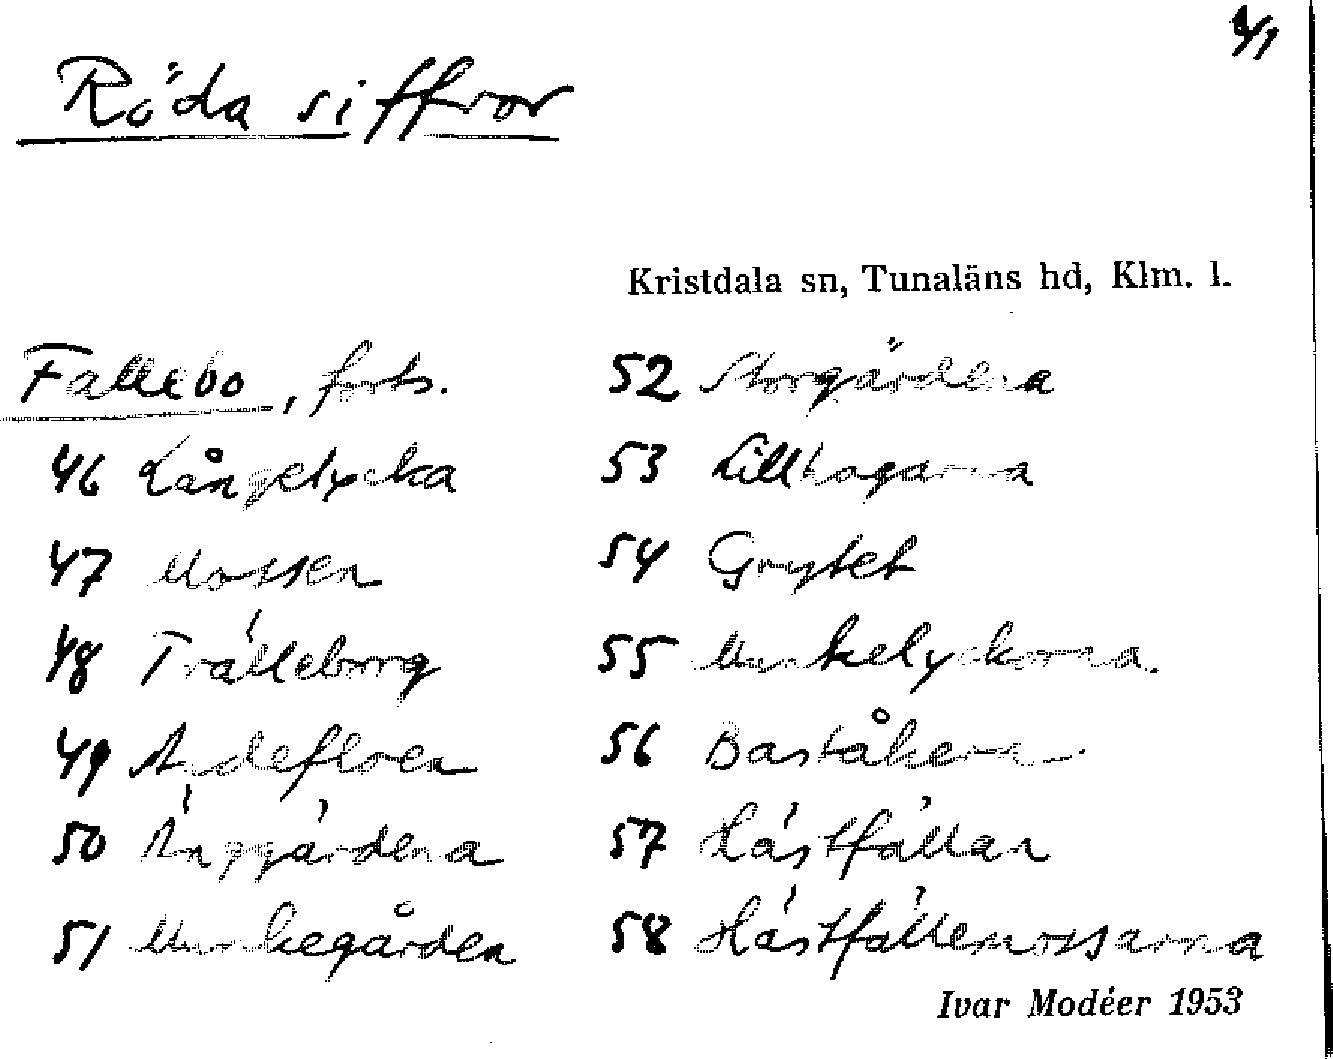 Röda siffror
Kristdala sn, Tunaläns hd, Klm. l.
Fallebo, forts.
46 Långelycka
47 Mossen
48 Trälleborg
49 Andefloen
50 Änggärdena
51 Munkegården
52 Storgärdena
53 Lillhagarna
54 Grytet
55 Munkelyckorna.
56 Baståkern
57 Hästfällan
58 Hästfällemossarna
Ivar Modéer 1953